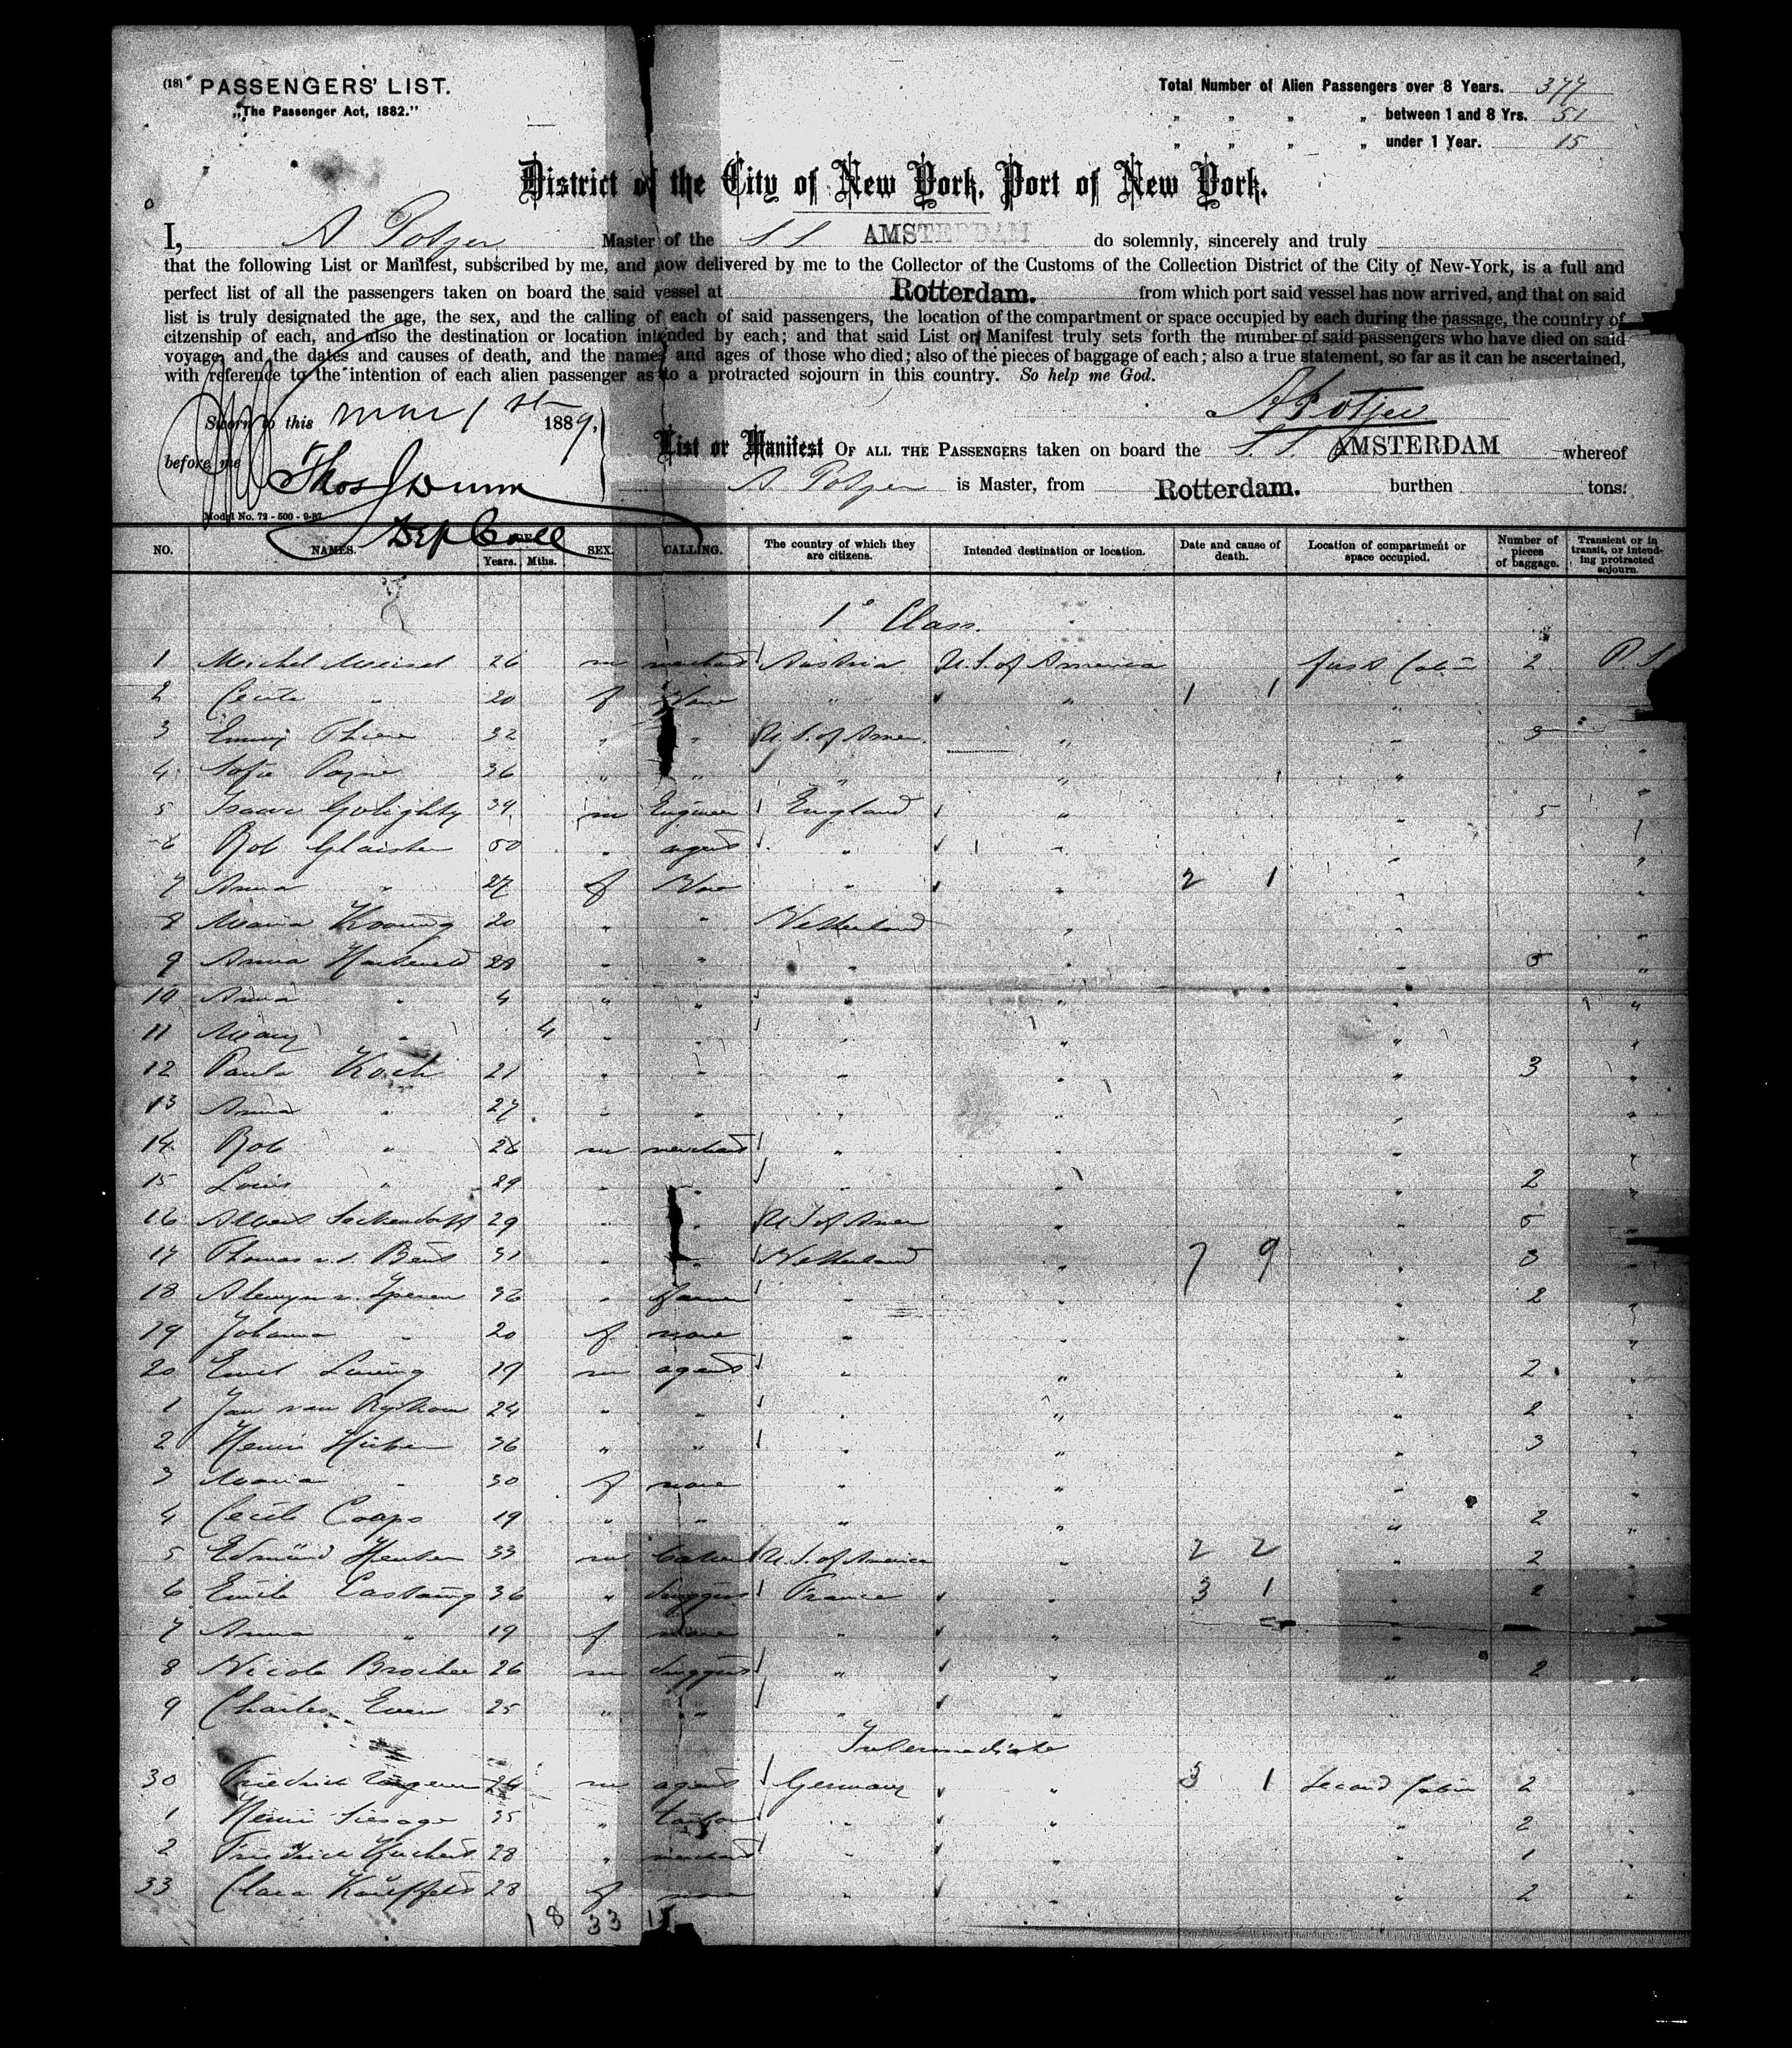 (18) PASSENGERS' LIST.
„The Passenger Act, 1882."
Total Number of Alien Passengers over 8 Years. 377
„ „ „ „ between 1 and 8 Yrs. 51
„ „ „ „ under 1 Year. 15
District of the City of New York, Port of New York.
I, A Potjer Master of the SS AMSTERDAM do solemnly, sincerely and truly
that the following List or Manifest, subscribed by me, and now delivered by me to the Collector of the Customs of the Collection District of the City of New-York, is a full and
perfect list of all the passengers taken on board the said vessel at Rotterdam. from which port said vessel has now arrived, and that on said
list is truly designated the age, the sex, and the calling of each of said passengers, the location of the compartment or space occupied by each during the passage, the country of
citzenship of each, and also the destination or location intended by each; and that said List or Manifest truly sets forth the number of said passengers who have died on said
voyage, and the dates and causes of death, and the names and ages of those who died; also of the pieces of baggage of each; also a true statement, so far as it can be ascertained,
with reference to the intention of each alien passenger as to a protracted sojourn in this country. So help me God.
A Potjer
Sworn to this mar 1st 1889,
before me Thos J Dunn
Dep Coll
List or Manifest OF ALL THE PASSENGERS taken on board the S.S. AMSTERDAM whereof
A. Potjer is Master, from Rotterdam. burthen tons:
Model No. 72 - 500 - 9-87.
NO. NAMES. Years. Mths. SEX. CALLING. The country of which they are citizens. Intended destination or location. Date and cause of death. Location of compartment or space occupied. Number of pieces of baggage. Transient or in transit, or intending protracted sojourn.
1e Class.
1 Michel Meisel 26 m merchant Austria U.S. of America first Cabin 2 P.S.
2 Cecile „ 20 f None „ „ 1 1 „
3 Emmy 32 „ „ U.S. of Amer. „ „ 3 „
4 Sofie Payne 36 „ „ „ „ „ „
5 Isaac Golighty 39 m Engineer England „ „ 5 „
6 Rob Glaister 50 „ agent „ „ „ „
7 Anna „ 27 f None „ „ 2 1 „ „
8 Maria 20 „ „ Netherland „ „ „
9 Anna 28 „ „ „ „ „ 5 „
10 Anna „ 4 „ „ „ „ „ „
11 Mary „ 4 „ „ „ „ „ „
12 Paula Koch 21 „ „ „ „ „ 3 „
13 Anna „ 27 „ „ „ „ „ „
14 Rob „ 26 m merchant „ „ „ „
15 Louis „ 29 „ „ „ „ „ 2 „
16 Albert Seckendorff 29 „ „ U.S. of Amer „ „ 5 „
17 Thomas v.d. 31 „ „ Netherland „ 7 9 „ 3 „
18 v. Yperen 36 „ farmer „ „ „ 2 „
19 Johanna „ 20 f none „ „ „ „
20 Emil 19 m agent „ „ „ 2 „
1 Jan van 24 „ „ „ „ „ 2 „
2 Henri 36 „ „ „ „ „ 3 „
3 Maria „ 30 f none „ „ „ „
4 Cecile Coops 19 „ „ „ „ „ 2 „
5 Edmund 33 m U.S. of America „ 2 2 „ 2 „
6 Emile Castaing 36 „ France „ 3 1 „ 2 „
7 Anna „ 19 f none „ „ „ „
8 Nicola 26 m „ „ „ 2 „
9 Charles Even 25 „ „ „ „
Intermediate
30 Friedrich 24 m agent Germany „ 3 1 second Cabin 2 „
1 Henri 35 „ „ „ „ 2 „
2 Friedrich 28 „ merchant „ „ „ 1 „
33 Clara 28 f none „ „ „ 2 „
18 33